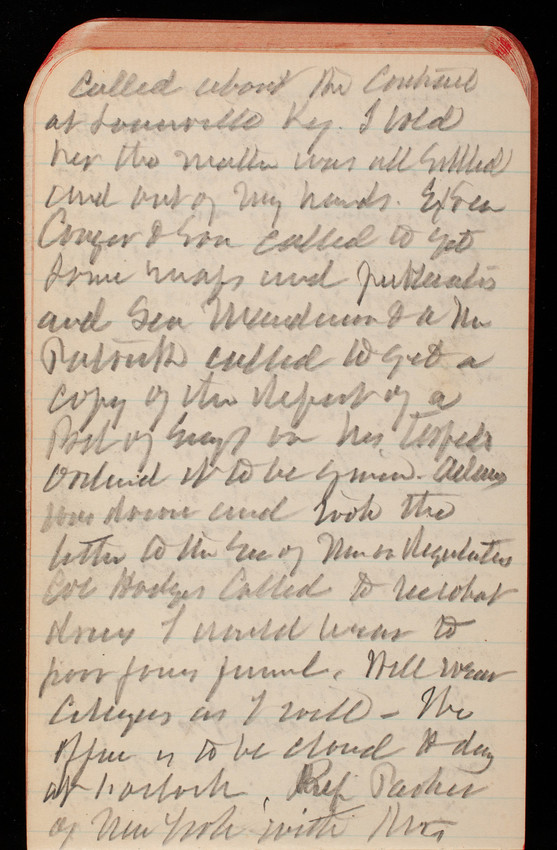 called about the Contract
at Louisville Ky. I told
her the matter was all settled
and out of my hands. Ex Sen
Conger & Son called to get
some maps and
and Sen Manderson & a Mr
Patrick called to get a
copy of the Report of a
Bd of Engs on his
ordered it to be given. Adams
was down and took the
letter to the Sec of
Col Hodges Called to see what
dress I would wear to
funeral. Will wear
as I will - The
office is to be closed to day
at 1 oclock. Prof Parker
of New York with Mrs